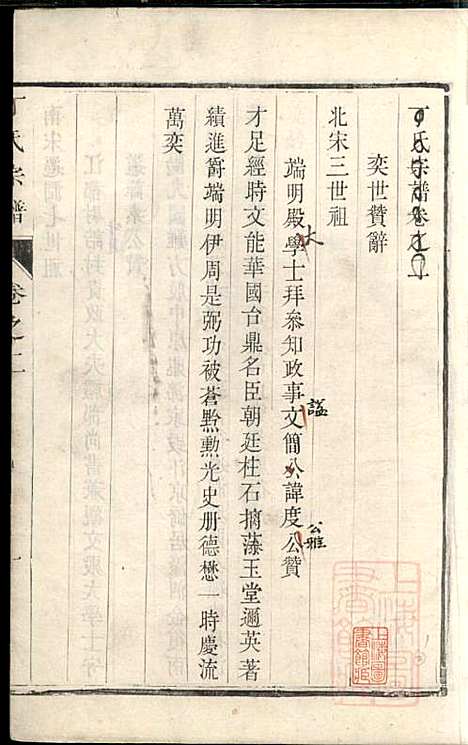 丁氏宗譜卷之二
奕世贊辭
北宋三世祖
端明殿大學士拜參知政事諡文簡公諱度公雅公贊
才足經時文能華國台鼎名臣朝廷柱石摛藻玉堂邇英著
績進爵端明伊周是弼功被蒼黔勲光史册德懋一時慶流
萬奕
丁氏宗譜
卷之二
一
上海圖書館藏